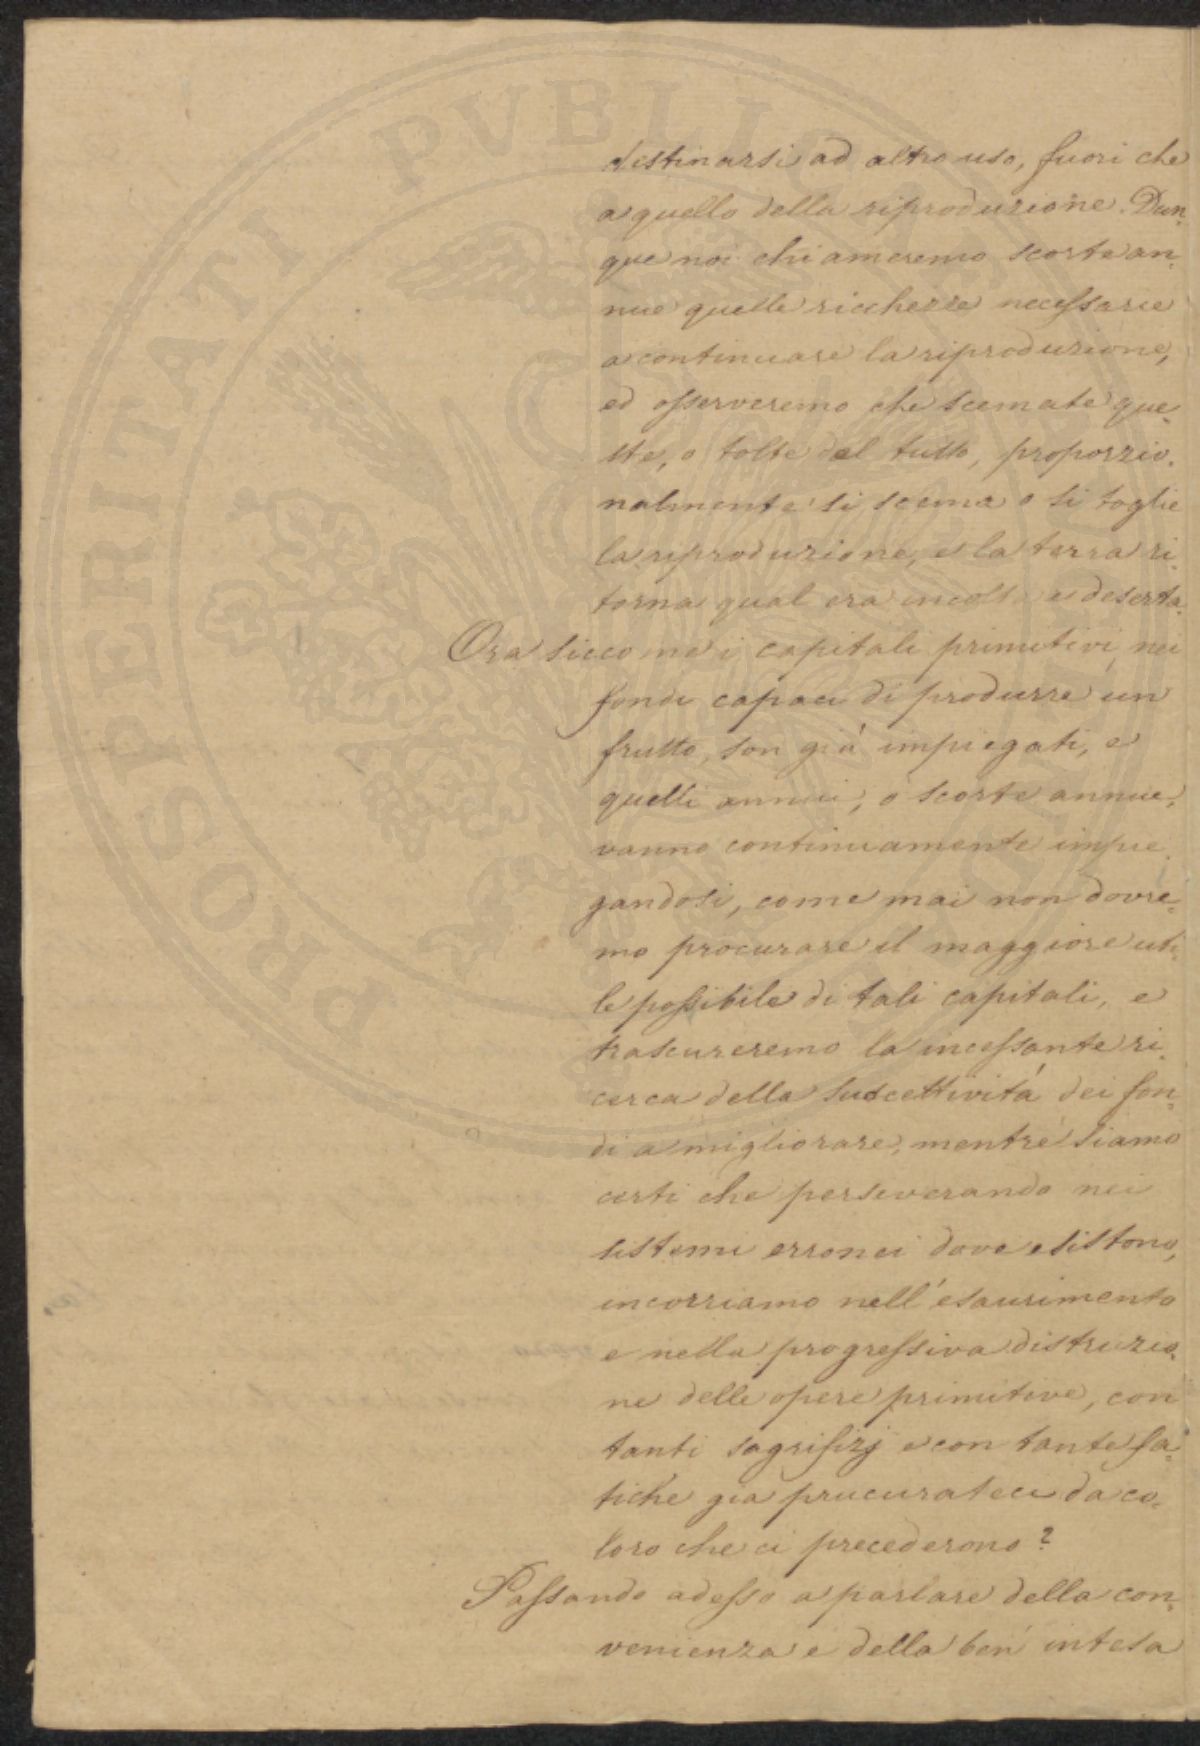 destinarsi ad altro uso, fuori che
a quello della riproduzione. Dun-
que noi chiameremo scorte an-
nue quelle ricchezze necessarie
a continuare la riproduzione,
ed osserveremo che scemate que-
ste, o tolte del tutto, proporzio-
nalmente si scema o si toglie
la riproduzione, e la terra ri-
torna qual era incolta e deserta.
Ora siccome i capitali primitivi, nei
fondi capaci di produrre un
frutto, son giá impiegati, e
quelli annui, o scorte annue,
vanno continuamente impie-
gandosi, come mai non dovre-
mo procurare il maggiore uti-
le possibile di tali capitali, e
trascureremo la incessante ri-
cerca della suscettivitá dei fon-
di a migliorare, mentre siamo
certi che perseverando nei
sistemi erronei dove esistono,
incorriamo nell'esaurimento
e nella progressiva distruzio-
ne delle opere primitive, con
tanti sagrifizj e con tante fa-
tiche gia prucurateci da co-
loro che ci precederono?
Passando adesso a parlare della con-
venienza e della ben intesa
PROSPERITATI PVBLICAE